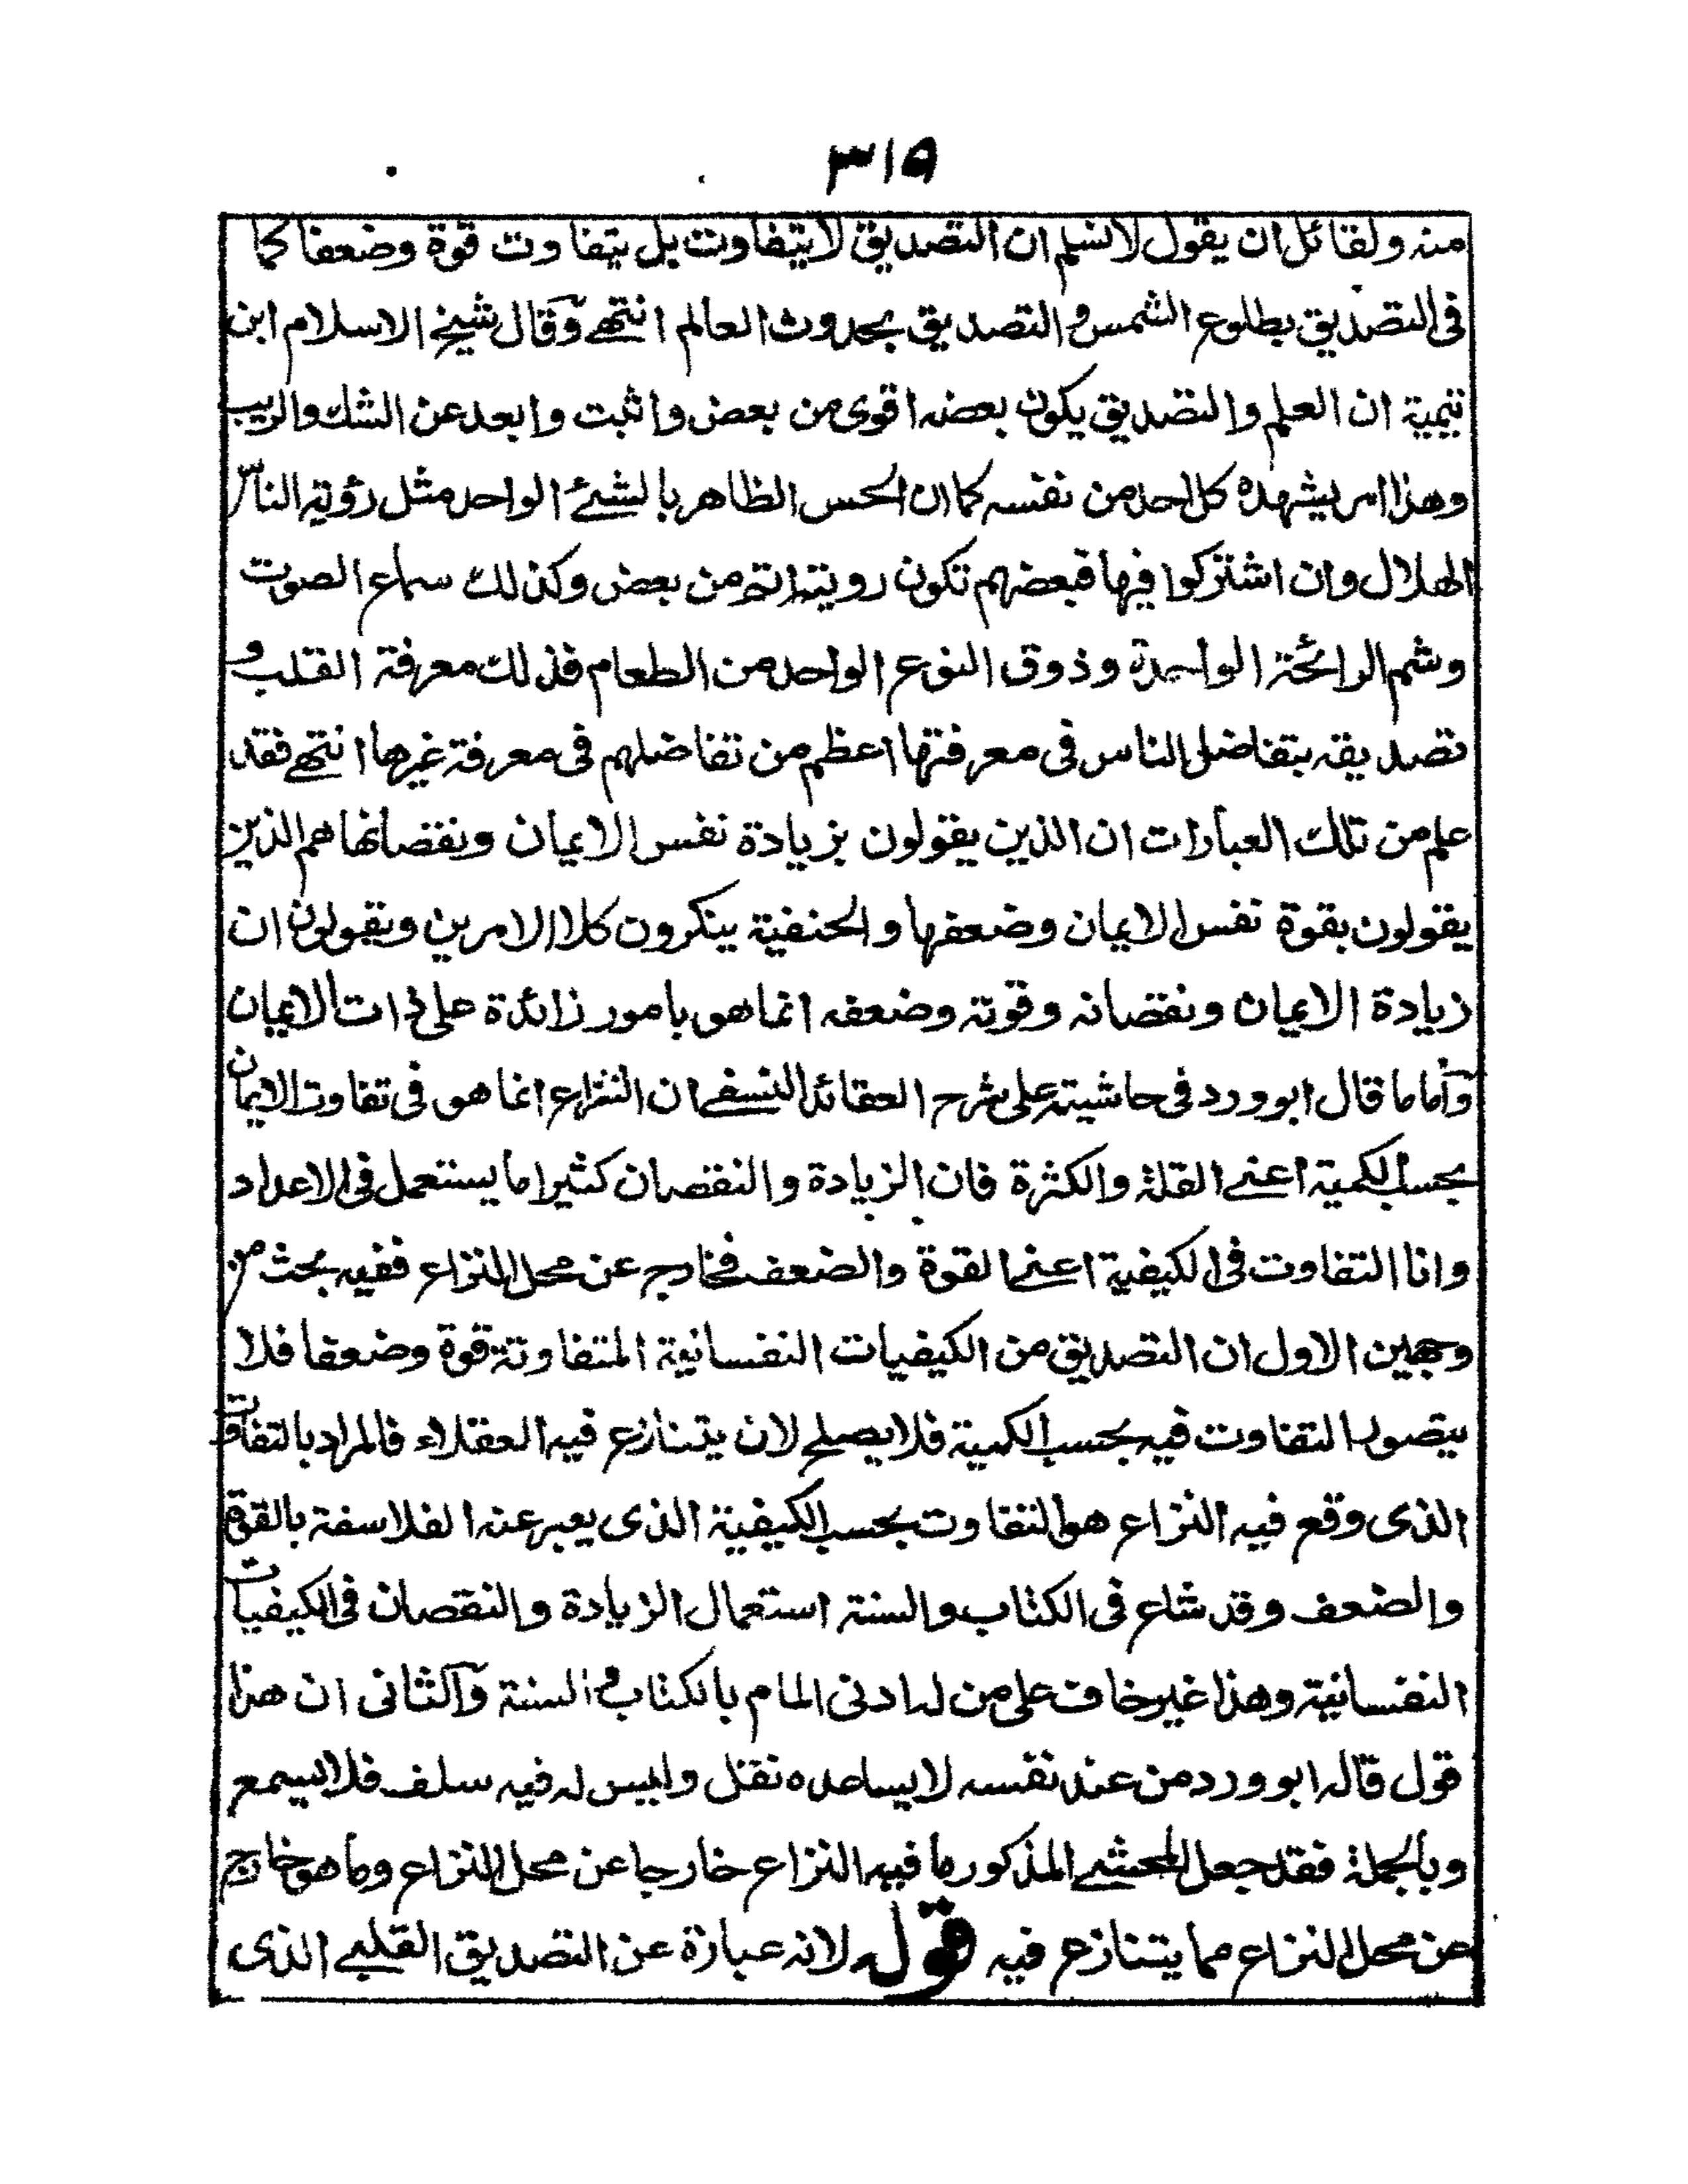 ٣١٩
منه ولقائل ان يقول لا نسلم ان التصديق لا يتفاوت بل يتفاوت قوة وضعفا كما
فى التصديق بطلوع الشمس والتصديق بحدوث العالم انتهے وقال شيخ الاسلام ابن
تيمية ان العلم والتصديق يكون بعضه اقوى من بعض واثبت وابعد عن الشك والريب
وهذا امر يشهده كل احد من نفسه كما ان الحس الظاهر بالشئ الواحد مثل رؤية الناس
الهلال وان اشتركوا فيها فبعضهم تكون رويته اتم من بعض وكذلك سماع الصوت
وشم الرائحة الواحدة وذوق النوع الواحد من الطعام فذلك معرفة القلب و
تصديقه بتفاضل الناس فى معرفتها اعظم من تفاضلهم فى معرفة غيرها انتهے فقد
علم من تلك العبارات ان الذين يقولون بزيادة نفس الايمان ونقصانها هم الذين
يقولون بقوة نفس الايمان وضعفها والحنفية ينكرون كلا الامرين ويقولون ان
زيادة الايمان ونقصانه وقوته وضعفه انما هو بامور زائدة على ذات الايمان
واما ما قال ابو ورد فى حاشيته على شرح العقائد النسفے ان النزاع انما هو فى تفاوت الايمان
بحسب الكمية اعنے القلة والكثرة فان الزيادة والنقصان كثيرا ما يستعمل فى الاعداد
وانا التفاوت فى الكيفية اعنے القوة والضعف فخارج عن محل النزاع ففيه بحث من
وجهين الاول ان التصديق من الكيفيات النفسانية المتفاوتة قوة وضعفا فلا
يتصور التفاوت فيه بحسب الكمية فلا يصلح لان يتنازع فيه العقلاء فالمراد بالتفاوت
الذى وقع فيه النزاع هو التفاوت بحسب الكيفية الذى يعبر عنه الفلاسفة بالقوة
والضعف وقد شاع فى الكتاب والسنة استعمال الزيادة والنقصان فى الكيفيات
النفسانية وهذا غير خاف على من له ادنى المام بالكتاب والسنة والثانى ان هذا
قول قاله ابو ورد من عند نفسه لا يساعده نقل وليس له فيه سلف فلا يسمع
وبالجملة فقد جعل المحشے المذكور ما فيه النزاع خارجا عن محل النزاع وما هو خارج
عن محل النزاع مما يتنازع فيه قوله لانه عبارة عن التصديق القلبے الذى